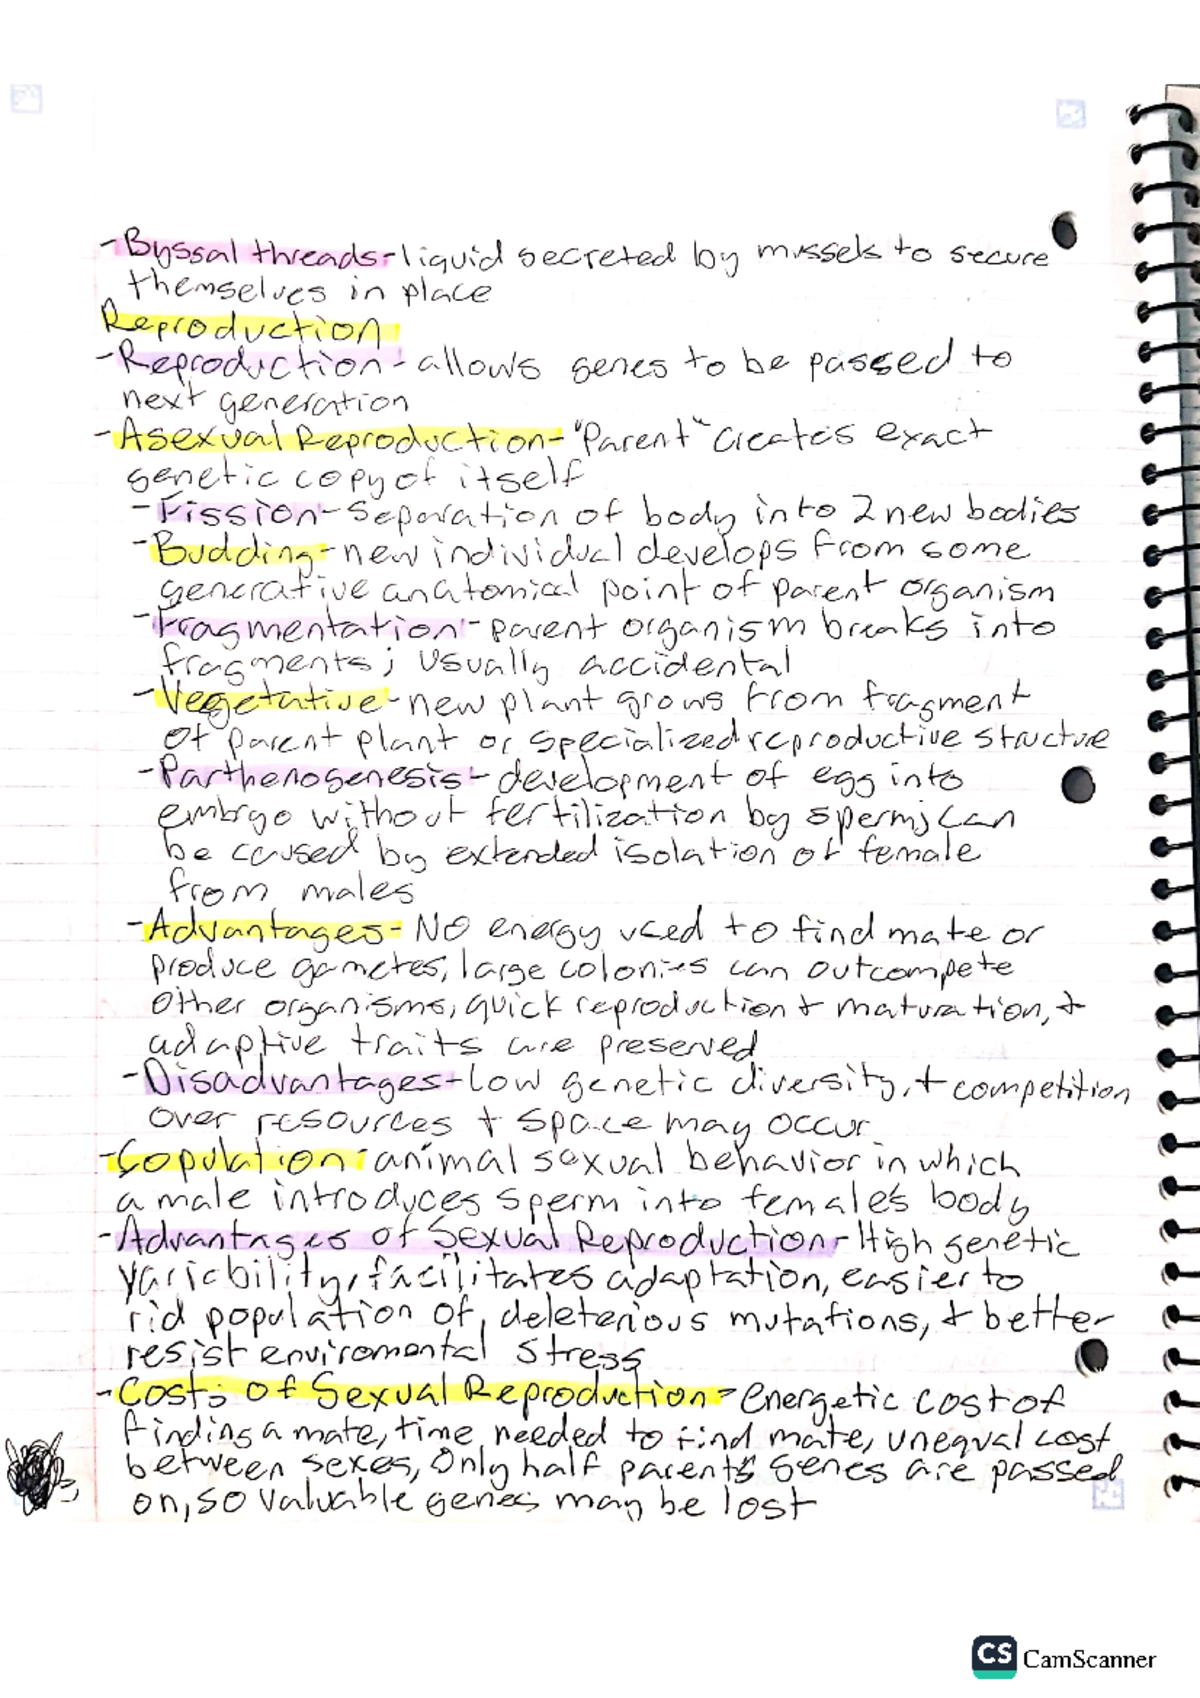 -Byssal threads-liquid secreted by mussels to secure
themselves in place
Reproduction
-Reproduction-allows genes to be passed to
next generation
-Asexual Reproduction-"Parent" creates exact
genetic copy of itself
-Fission-Separation of body into 2 new bodies
-Budding-new individual develops from some
generative anatomical point of parent organism
-Fragmentation-parent organism breaks into
fragments; usually accidental
-Vegetative-new plant grows from fragment
of parent plant or specialized reproductive structure
-Parthenogenesis-development of egg into
embryo without fertilization by sperm; can
be caused by extended isolation of female
from males
-Advantages-No energy used to find mate or
produce gametes, large colonies can outcompete
other organisms, quick reproduction + maturation, +
adaptive traits are preserved
-Disadvantages-Low genetic diversity, + competition
over resources + space may occur
-Copulation-animal sexual behavior in which
a male introduces sperm into female's body
-Advantages of Sexual Reproduction-High genetic
variability, facilitates adaptation, easier to
rid population of, deleterious mutations, + better
resist enviromental stress
-Costs of Sexual Reproduction-energetic cost of
finding a mate, time needed to find mate, unequal cost
between sexes, Only half parent's genes are passed
on, so valuable genes may be lost
CS CamScanner